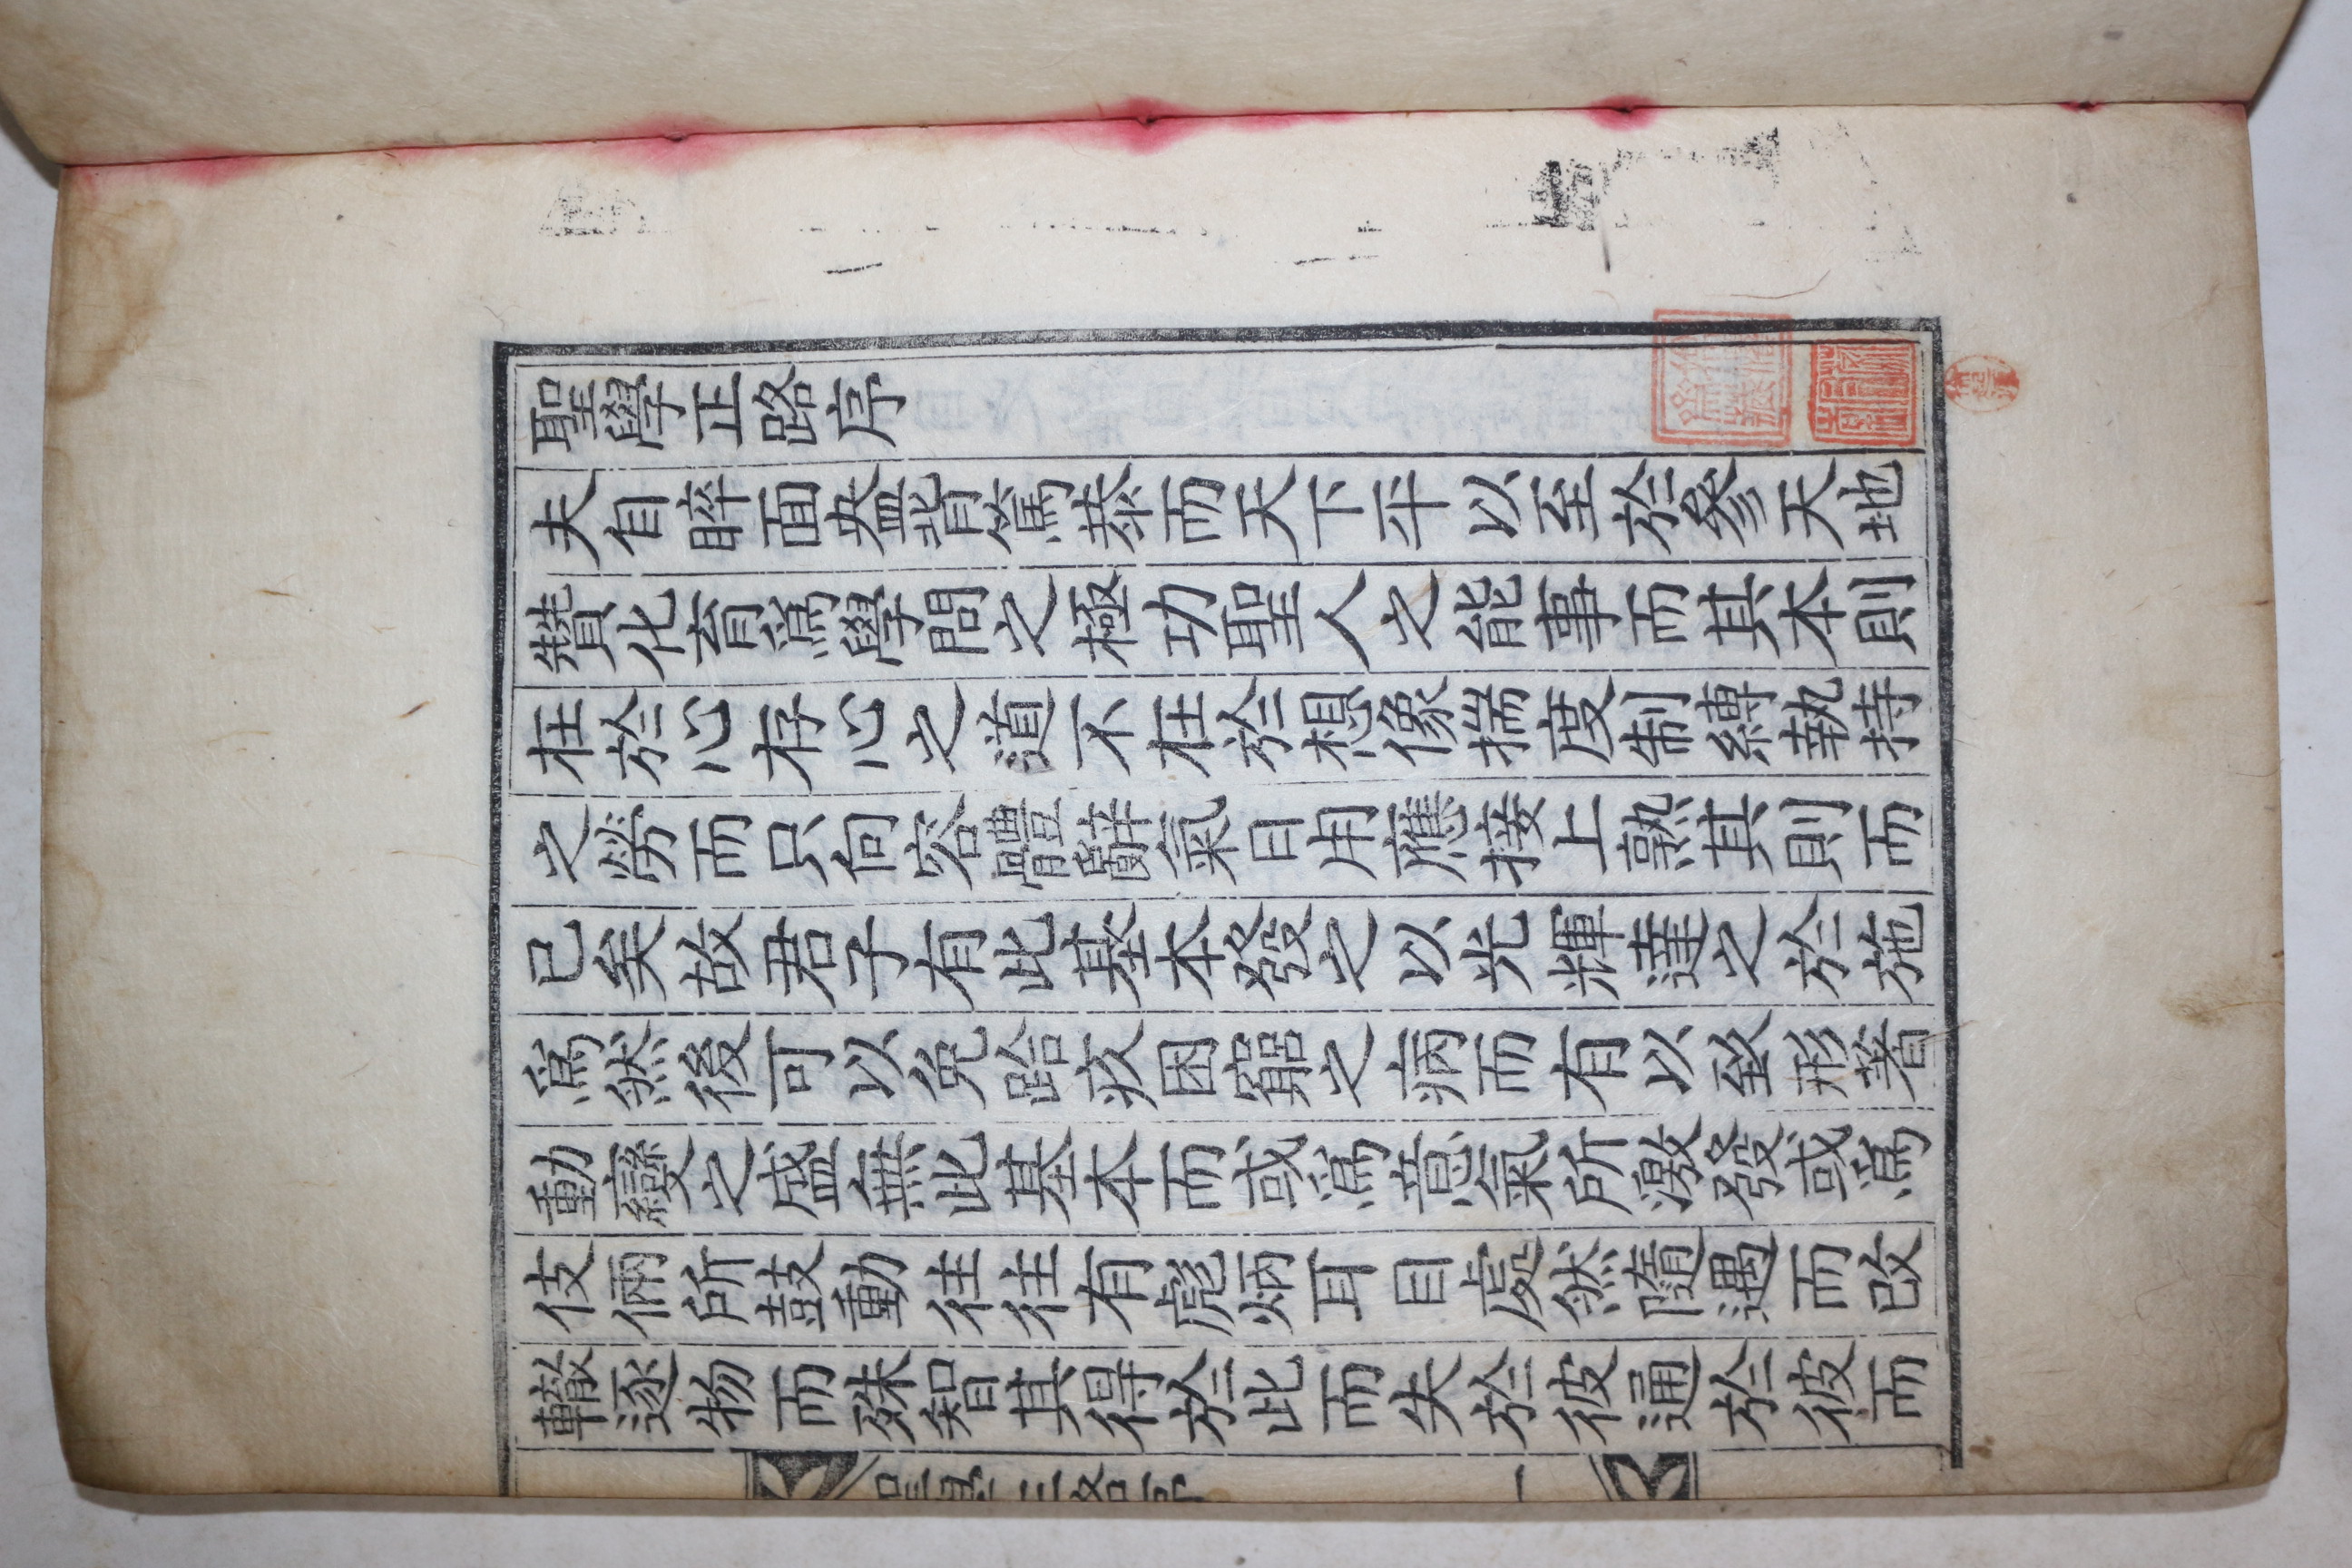 聖學正路序
夫自睟面盎背篤恭而天下平以至於參天地
贊化育爲學問之極功聖人之能事而其本則
在於心存心之道不在於想像揣度制縛執持
之勞而只向容體辭氣日用應接上熟其則而
已矣故君子有此基本發之以光輝達之於施
爲然後可以免跲疚困窮之病而有以致形著
動變之盛無此基本而或爲意氣所激發或爲
伎倆所鼓動往往有彪炳耳目處然隨遇而改
轍逐物而殊智其得於此而失於彼通於彼而
聖學正路序 一